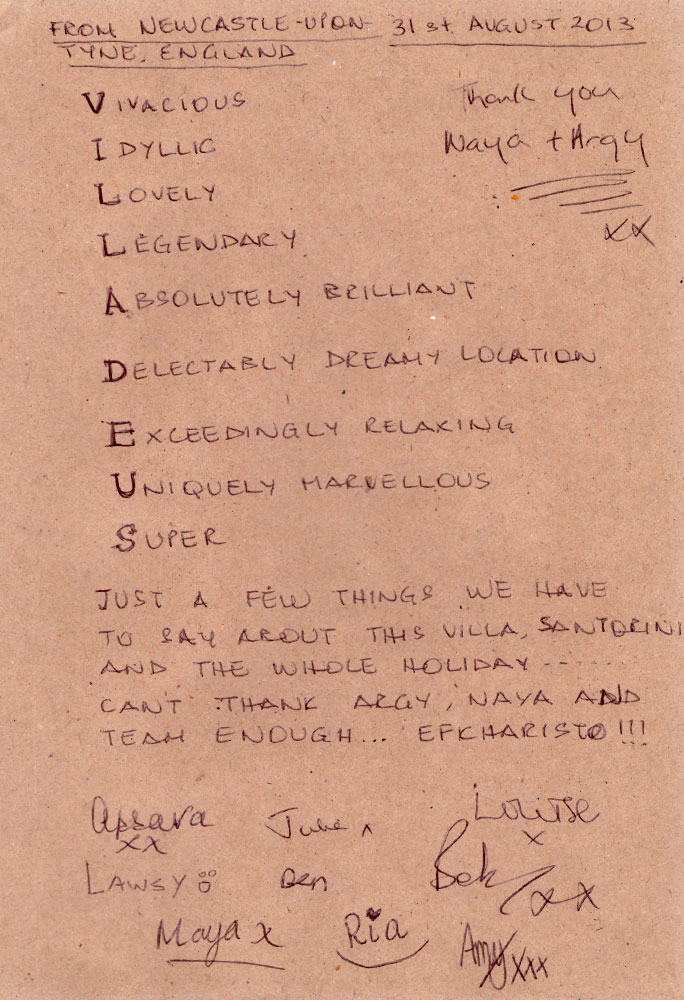 FROM NEWCASTLE-UPON- 31st AUGUST 2013
TYNE, ENGLAND
VIVACIOUS
Thank you
IDYLLIC
Naya + Argy
LOVELY
xx
LEGENDARY
ABSOLUTELY BRILLIANT
DELECTABLY DREAMY LOCATION
EXCEEDINGLY RELAXING
UNIQUELY MARVELLOUS
SUPER
JUST A FEW THINGS WE HAVE
TO SAY ABOUT THIS VILLA, SANTORINI
AND THE WHOLE HOLIDAY ------
CAN'T THANK ARGY, NAYA AND
TEAM ENOUGH... EFKHARISTO!!!
Apsara Louise
xx x
LAWSY Ben Bek xx
Maya x Ria Amy xxx